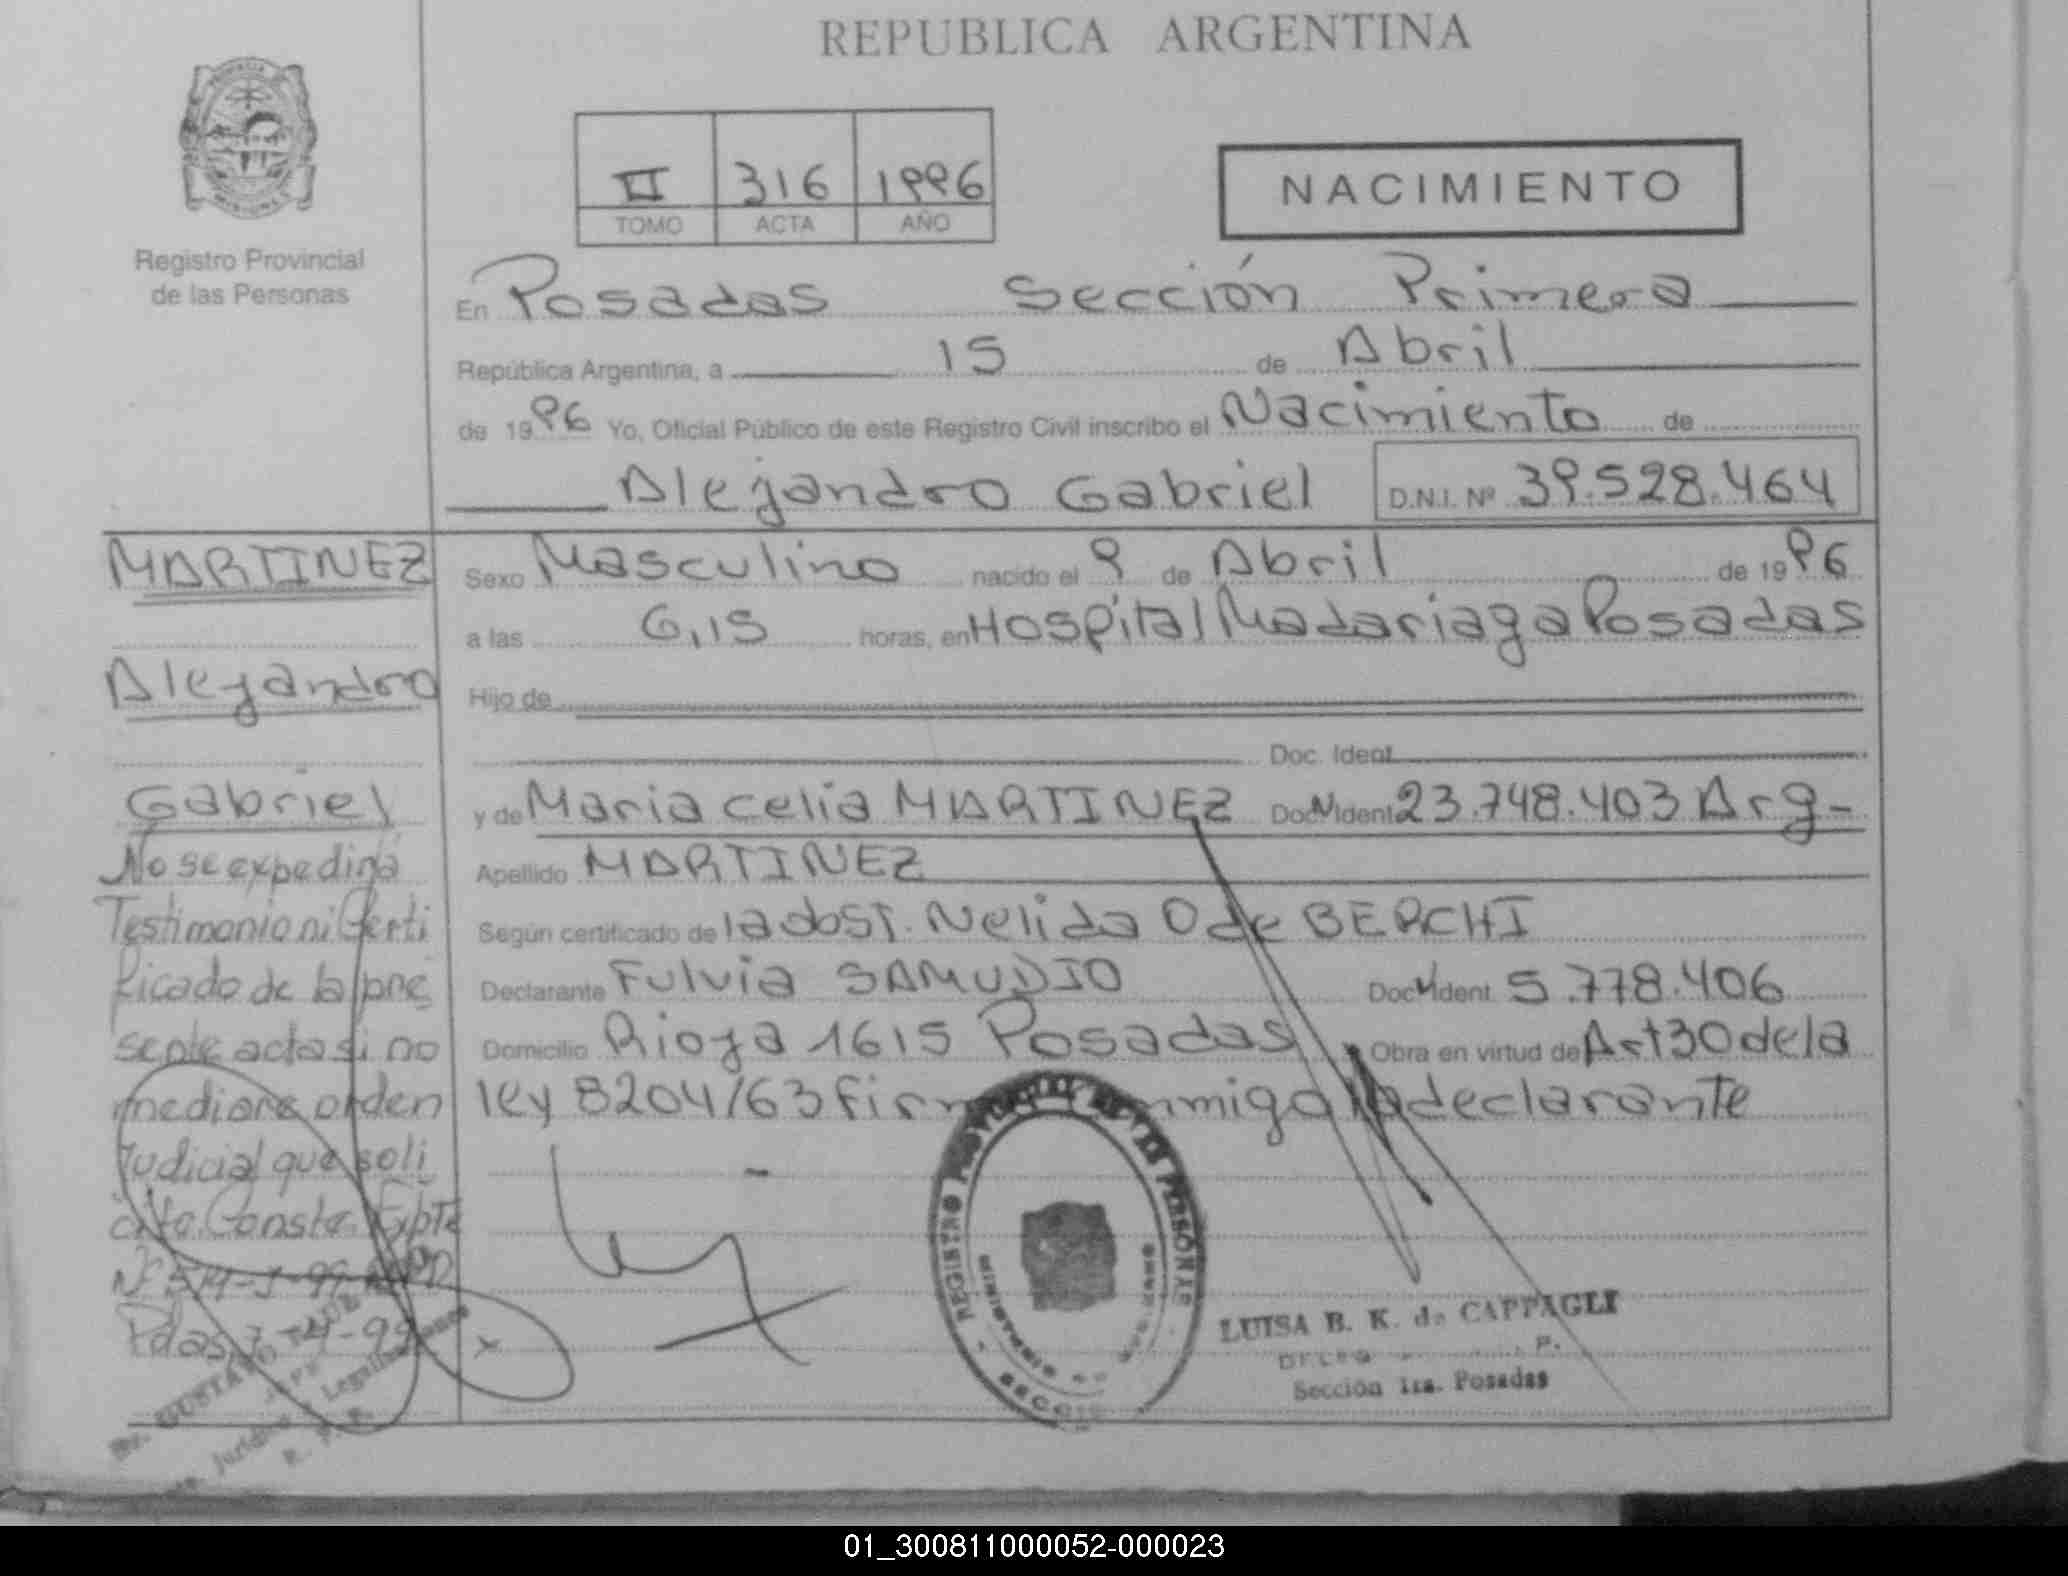 REPUBLICA ARGENTINA
Registro Provincial
de las Personas
II 316 1996
TOMO ACTA AÑO
NACIMIENTO
En Posadas Sección Primera
República Argentina, a 15 de Abril
de 1996 Yo, Oficial Público de este Registro Civil inscribo el Nacimiento de
Alejandro Gabriel D.N.I. Nº 39.528.464
MARTINEZ
Alejandro
Gabriel
No se expedirá
Testimonio ni Certi
ficado de la pre
sente acta si no
mediare orden
Judicial que soli
cite. Conste. Expte
Pdas 7-4-99
Sexo Masculino nacido el 9 de Abril de 1996
a las 6,15 horas, en Hospital Madariaga Posadas
Hijo de
Doc. Ident.
y de Maria Celia MARTINEZ Doc N Ident 23.748.403 Arg-
Apellido MARTINEZ
Según certificado de la obst. Nelida O de BERCHI
Declarante Fulvia SAMUDIO Doc N Ident. 5.778.406
Domicilio Rioja 1615 Posadas Obra en virtud de Art 30 de la
ley 8204/63 Firma conmigo la declarante
REGISTRO PROVINCIAL DE LAS PERSONAS
LUISA B. K. de CAPPAGLI
Sección 1ra. Posadas
Dr. GUSTAVO
01_300811000052-000023